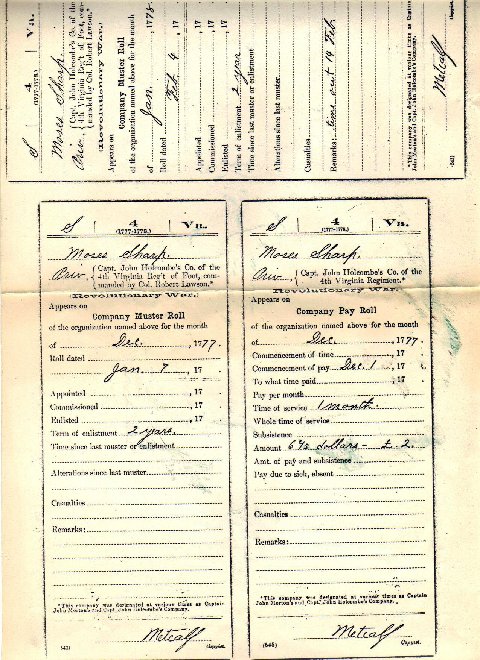 S | 4 | Va.
(1777-1778.)
Moses Sharp
Priv. { Capt. John Holcombe's Co. of the
4th Virginia Reg't of Foot, com-
manded by Col. Robert Lawson.*
(Revolutionary War.)
Appears on
Company Muster Roll
of the organization named above for the month
of Jan., 1778
Roll dated Feb 9, 17
Appointed , 17
Commissioned , 17
Enlisted , 17
Term of enlistment 2 year
Time since last muster or enlistment
Alterations since last muster
Casualties
Remarks: time out 14 Feb.
*This company was designated at various times as Captain
John Morton's and Capt. John Holcombe's Company.
Metcalf
Copyist.
(543)
S | 4 | Va.
(1777-1778.)
Moses Sharp.
Priv. { Capt. John Holcombe's Co. of the
4th Virginia Reg't of Foot, com-
manded by Col. Robert Lawson.*
(Revolutionary War.)
Appears on
Company Muster Roll
of the organization named above for the month
of Dec., 1777.
Roll dated
Jan. 7, 17
Appointed , 17
Commissioned , 17
Enlisted , 17
Term of enlistment 2 years.
Time since last muster or enlistment
Alterations since last muster
Casualties
Remarks:
*This company was designated at various times as Captain
John Morton's and Capt. John Holcombe's Company.
Metcalf
Copyist.
543)
S | 4 | Va.
(1777-1778.)
Moses Sharp.
Priv. { Capt. John Holcombe's Co. of the
4th Virginia Regiment.*
(Revolutionary War.)
Appears on
Company Pay Roll
of the organization named above for the month
of Dec., 1777.
Commencement of time , 17
Commencement of pay Dec. 1, 17
To what time paid , 17
Pay per month
Time of service 1 month.
Whole time of service
Subsistence
Amount 6⅔ dollars - £ 2.
Amt. of pay and subsistence
Pay due to sick, absent
Casualties
Remarks:
*This company was designated at various times as Captain
John Morton's and Capt. John Holcombe's Company.
Metcalf
Copyist.
(545)